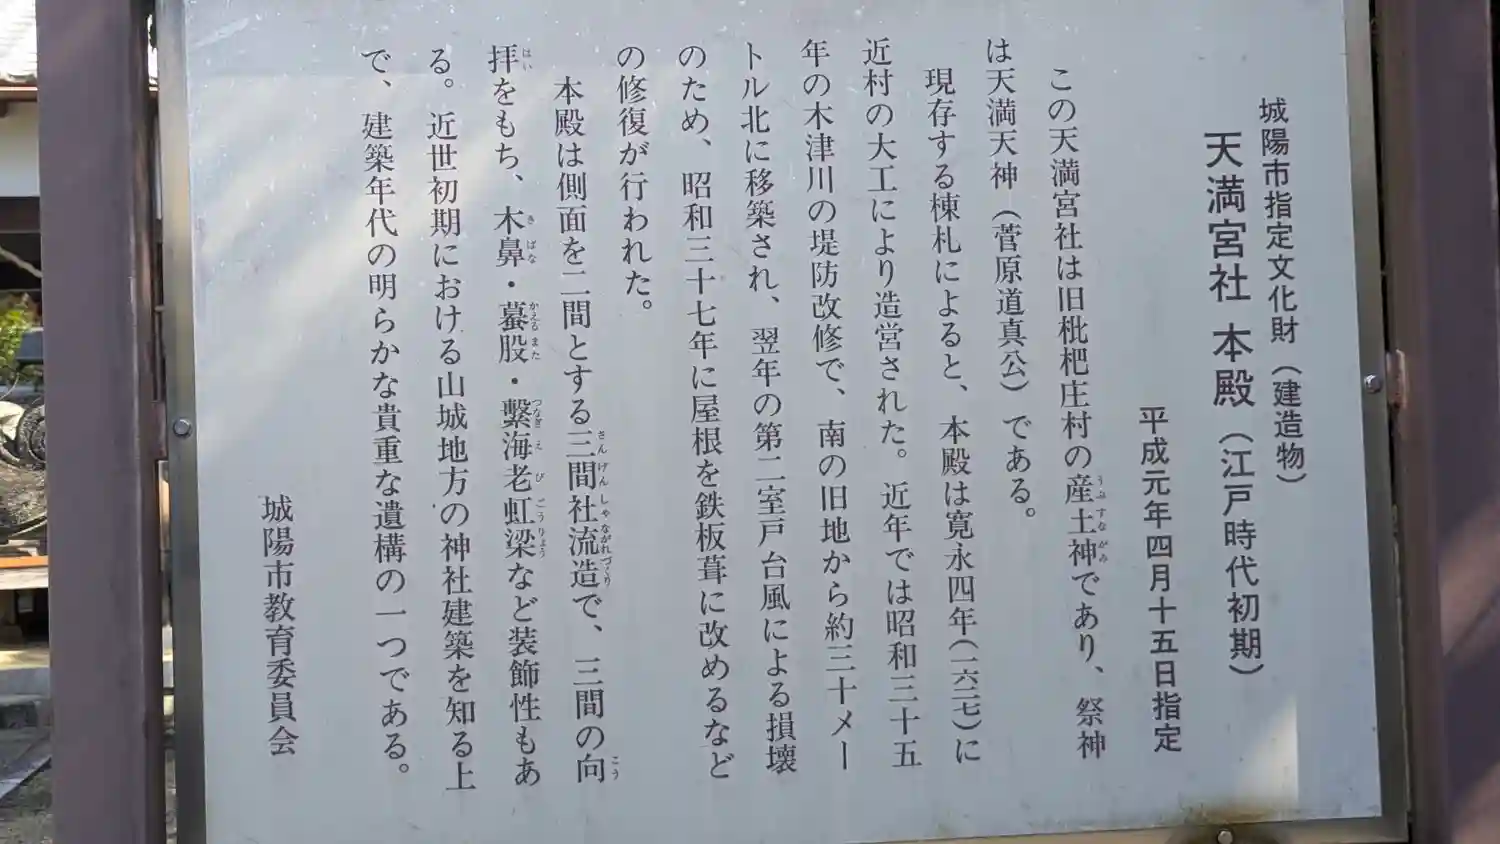 城陽市指定文化財（建造物）
天満宮社 本殿（江戸時代初期）
平成元年四月十五日指定
この天満宮社は旧枇杷庄村の産土神であり、祭神
は天満天神（菅原道真公）である。
現存する棟札によると、本殿は寛永四年（一六二七）に
近村の大工により造営された。近年では昭和三十五
年の木津川の堤防改修で、南の旧地から約三十メー
トル北に移築され、翌年の第二室戸台風による損壊
のため、昭和三十七年に屋根を鉄板葺に改めるなど
の修復が行われた。
本殿は側面を二間とする三間社流造で、三間の向
拝をもち、木鼻・蟇股・繫海老虹梁など装飾性もあ
る。近世初期における山城地方の神社建築を知る上
で、建築年代の明らかな貴重な遺構の一つである。
城陽市教育委員会